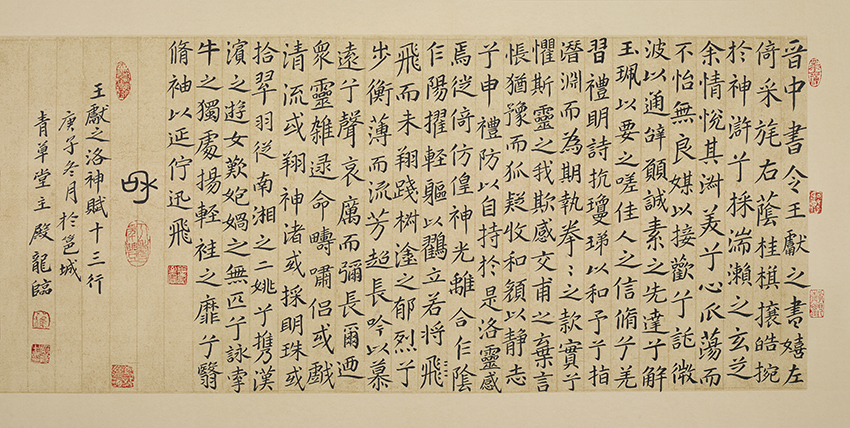 晋中書令王獻之書嬉左
倚采旄右蔭桂旗攘皓捥
於神滸兮採湍瀨之玄芝
余情悅其淑美兮心蕩而
不怡無良媒以接歡兮託微
波以通辭願誠素之先達兮解
玉珮以要之嗟佳人之信脩兮羌
習禮明詩抗瓊珶以和予兮指
潛淵而為期執拳〻之款實兮
懼斯靈之我欺感交甫之棄言
悵猶豫而狐疑收和顏以静志
兮申禮防以自持於是洛靈感
焉徙倚仿偟神光離合乍陰
乍陽擢輕軀以鸖立若將飛
飛而未翔踐椒塗之郁烈兮
步衡薄而流芳超長吟以慕
遠兮聲哀厲而彌長爾迺
眾靈雜遝命疇嘯侶或戲
清流或翔神渚或採明珠或
拾翠羽從南湘之二姚兮攜漢
濱之遊女歎匏媧之無匹兮詠牽
牛之獨處揚輕袿之靡兮翳
脩袖以延佇迅飛
王獻之洛神賦十三行
庚子冬月於邕城
青草堂主殿龍臨